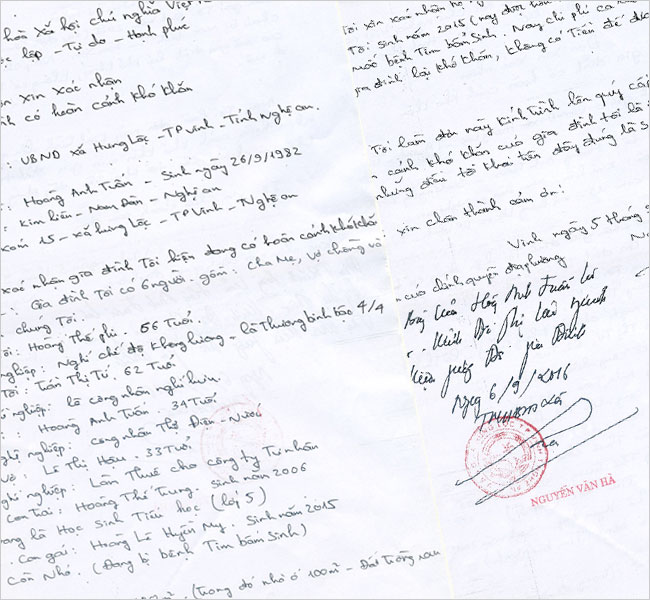 hòa Xã hội chủ nghĩa Việt
lập - Tự do - Hạnh phúc
xin xác nhận
có hoàn cảnh khó khăn
: UBND xã Hưng Lộc - TP Vinh - Tỉnh Nghệ an.
: Hoàng Anh Tuấn - Sinh ngày 26/9/1982
: Kim liên - Nam Đàn - Nghệ an
xóm 15 - xã hưng Lộc - TP Vinh - Nghệ an
xác nhận gia đình Tôi hiện đang có hoàn cảnh khó khăn
: Gia đình Tôi có 6 người. gồm: Cha Mẹ, vợ chồng và
chúng Tôi.
: Hoàng Thế phi. 66 Tuổi.
nghiệp: Nghỉ chế độ không lương - là Thương binh bậc 4/4
Tôi: Trần Thị Tứ. 62 Tuổi
nghiệp: là công nhân nghỉ hưu.
: Hoàng Anh Tuấn. 34 Tuổi
nghề nghiệp: công nhân Thị Điện - Nước
: Lê Thị Hậu. 33 Tuổi
nghề nghiệp: Làm Thuê cho công ty Tư nhân
Con trai: Hoàng Thế Trung. sinh năm 2006
đang là Học sinh Tiểu học (lớp 5)
Con gái: Hoàng Lê Huyền My. Sinh năm 2015
Còn Nhỏ. (Đang bị bệnh Tim bẩm Sinh)
(trong đó nhà ở 100m² - Đất trồng rau
Tôi xin xác nhận
Tôi: sinh năm 2015 (nay được
bệnh Tim bẩm Sinh. Nay chi phí ca
gia đình lại khó khăn, không có Tiền để
Tôi làm đơn này kính trình lên quý cấp
cảnh khó khăn của gia đình tôi là
những điều tôi khai trên đây đúng là
xin chân thành cảm ơn!
Vinh ngày 5 tháng 9
của chính quyền địa phương
Anh Tuấn
Ngày 6/9/2016
NGUYỄN VĂN HÀ